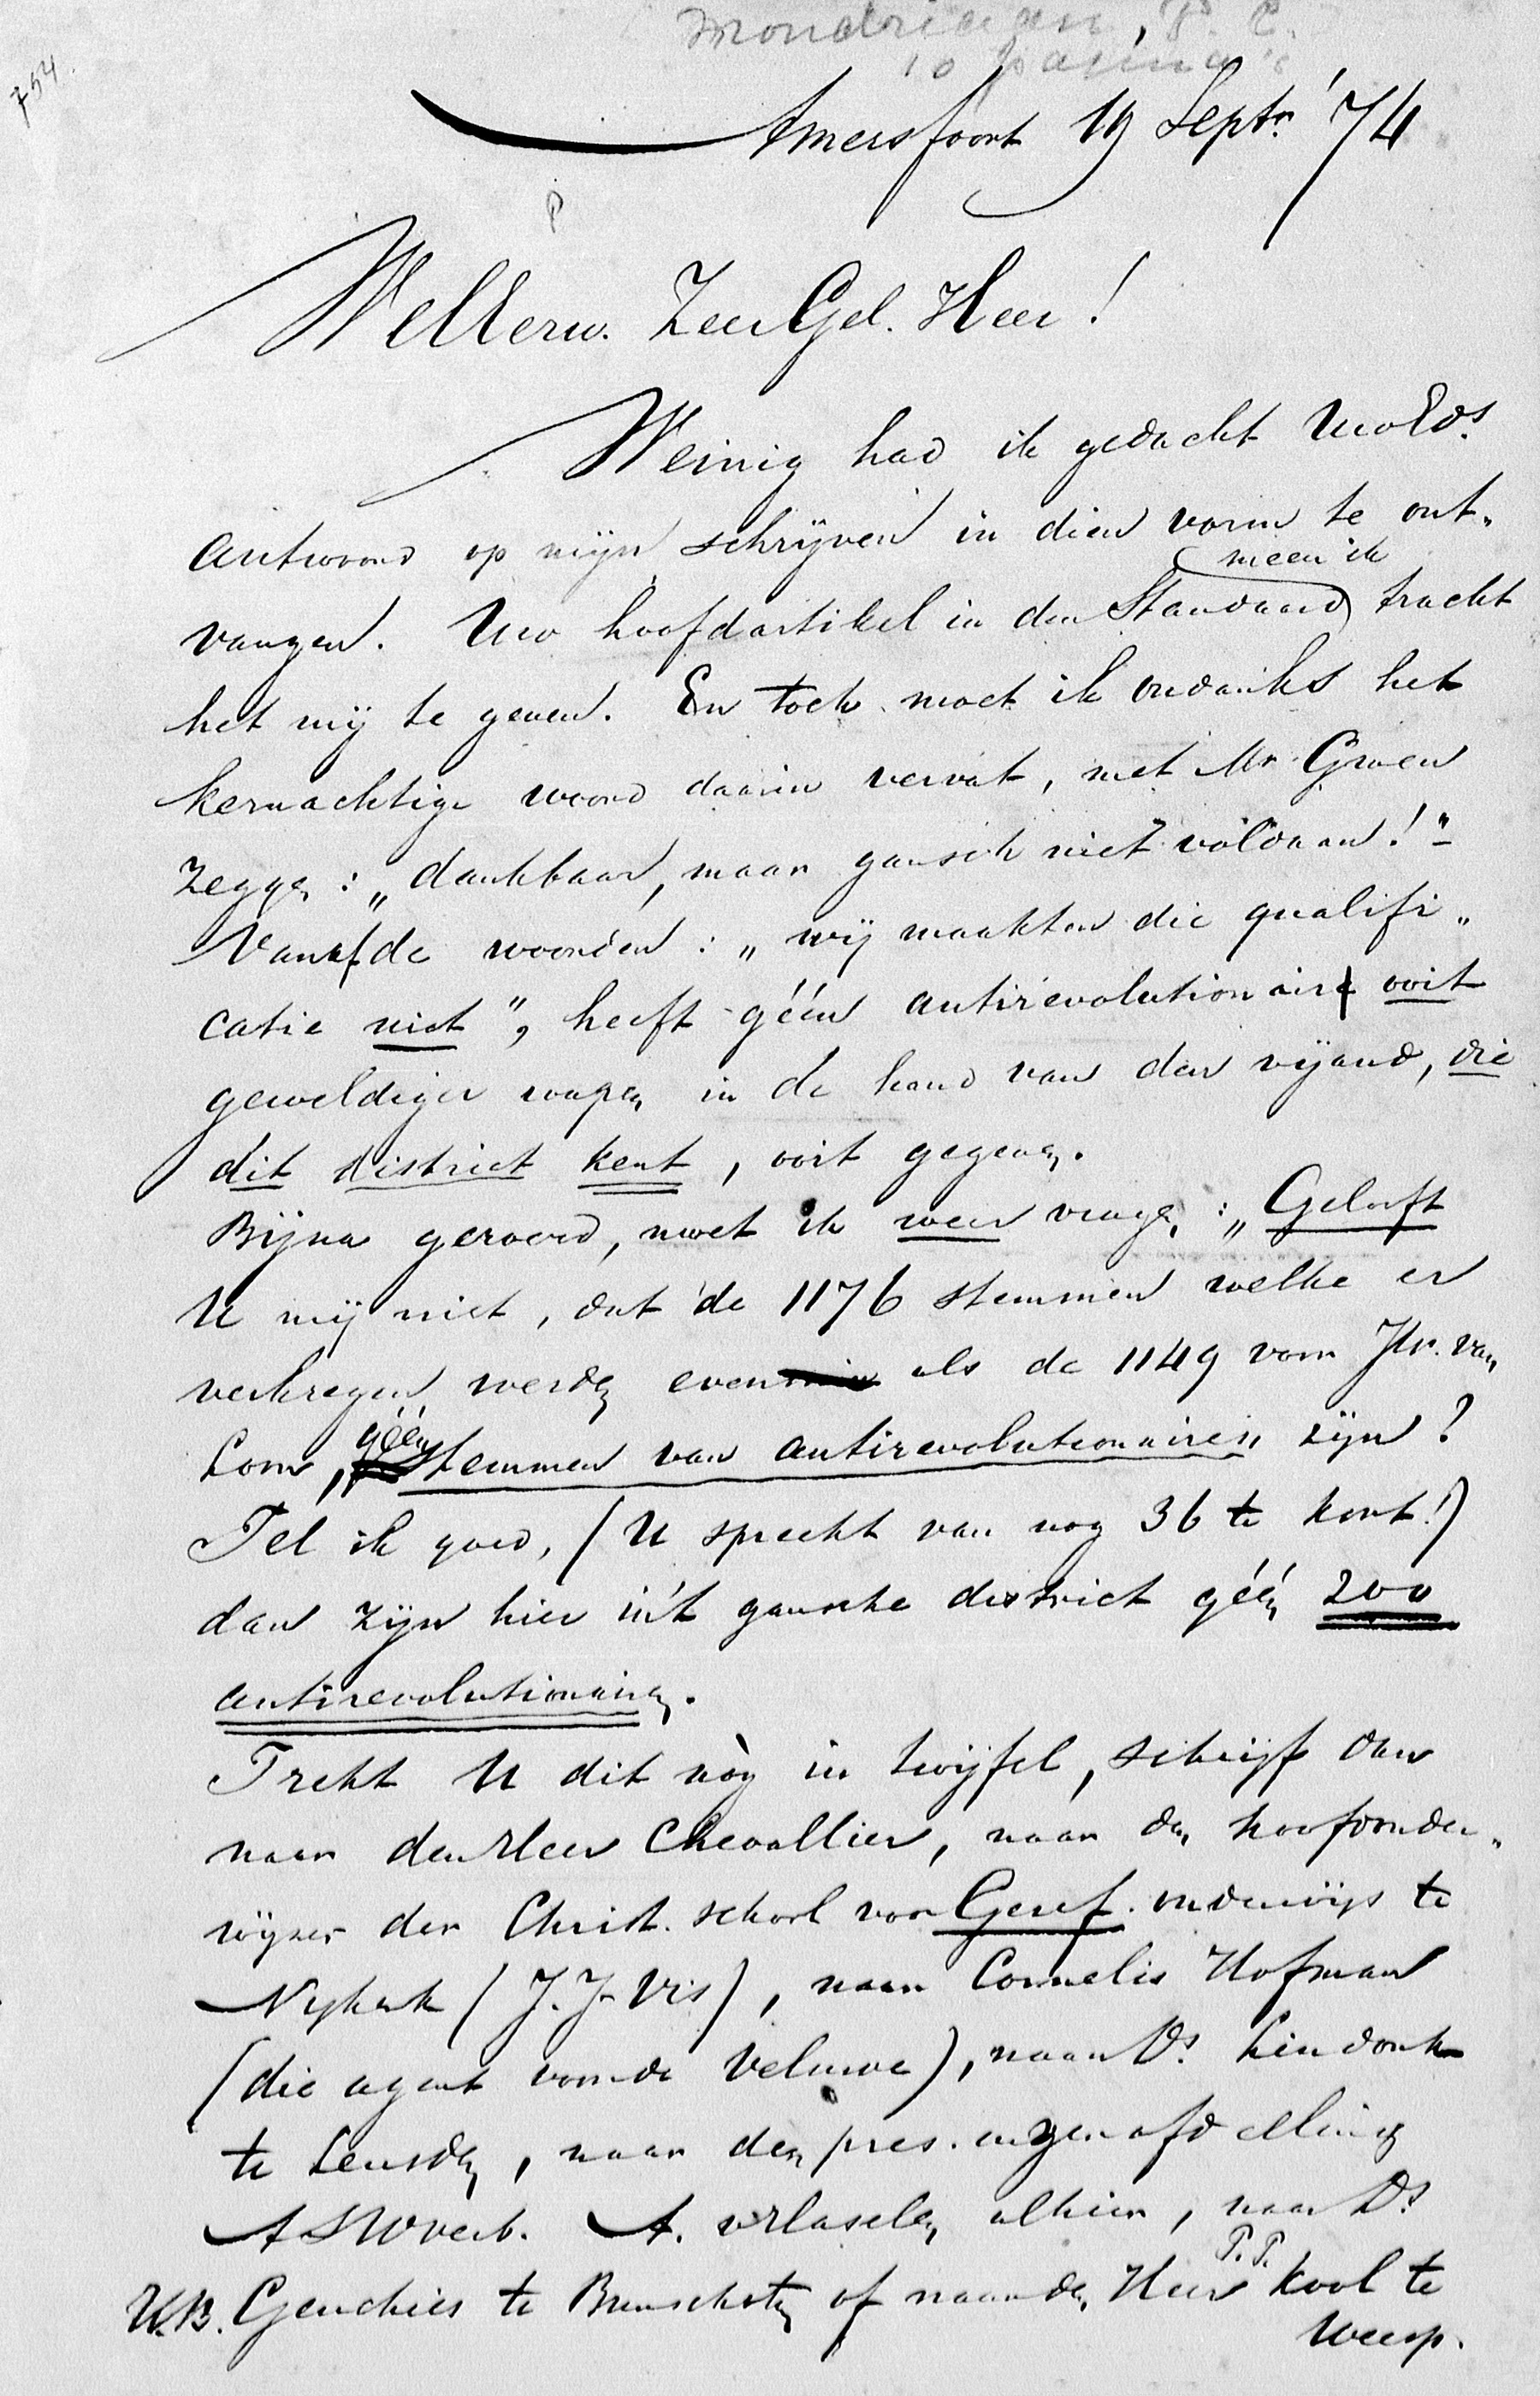 Mondriaan, P. C.
10 pagina's
754.
Amersfoort 19 Septr. '74
WelEerw. ZeerGel. Heer!
Weinig had ik gedacht UwEds.
antwoord op mijn schrijven in dien vorm te ont„
vangen. Uw hoofdartikel in den Standaard meen ik tracht
het mij te geven. En toch moet ik ondanks het
kernachtige woord daarin vervat, met Mr Groen
zeggen: „dankbaar, maar gansch niet voldaan!"
Vanaf de woorden: „wij maakten die qualifi„
catie niet", heeft géén antirevolutionair ooit
geweldiger wapen in de hand van den vijand, die
dit district kent, ooit gegeven.
Bijna geroerd, moet ik weer vragen: „Gelooft
U mij niet, dat de 1176 stemmen welke er
verkregen werden even als de 1149 voor Jhr. van
Loon, géén stemmen van antirevolutionairen zijn?
Tel ik goed, (U spreekt van nog 36 te kort!)
dan zijn hier in 't gansche district géén 200
antirevolutionairen.
Trekt U dit nòg in twijfel, schrijf dan
naar den Heer Chevallier, naar den hoofdonder„
wijzer der Christ. school voor Geref. onderwijs te
Nykerk (J. J. Vis), naar Cornelis Hofman
(die agent voor de Veluwe), naar Ds. Lindonk
te Leusden, naar den pres. onzer afdelling
ASWverb. A. alhier, naar Ds.
N.B. Genchies te Bunschoten of naar den Heer P. P. Kool te
Weesp.